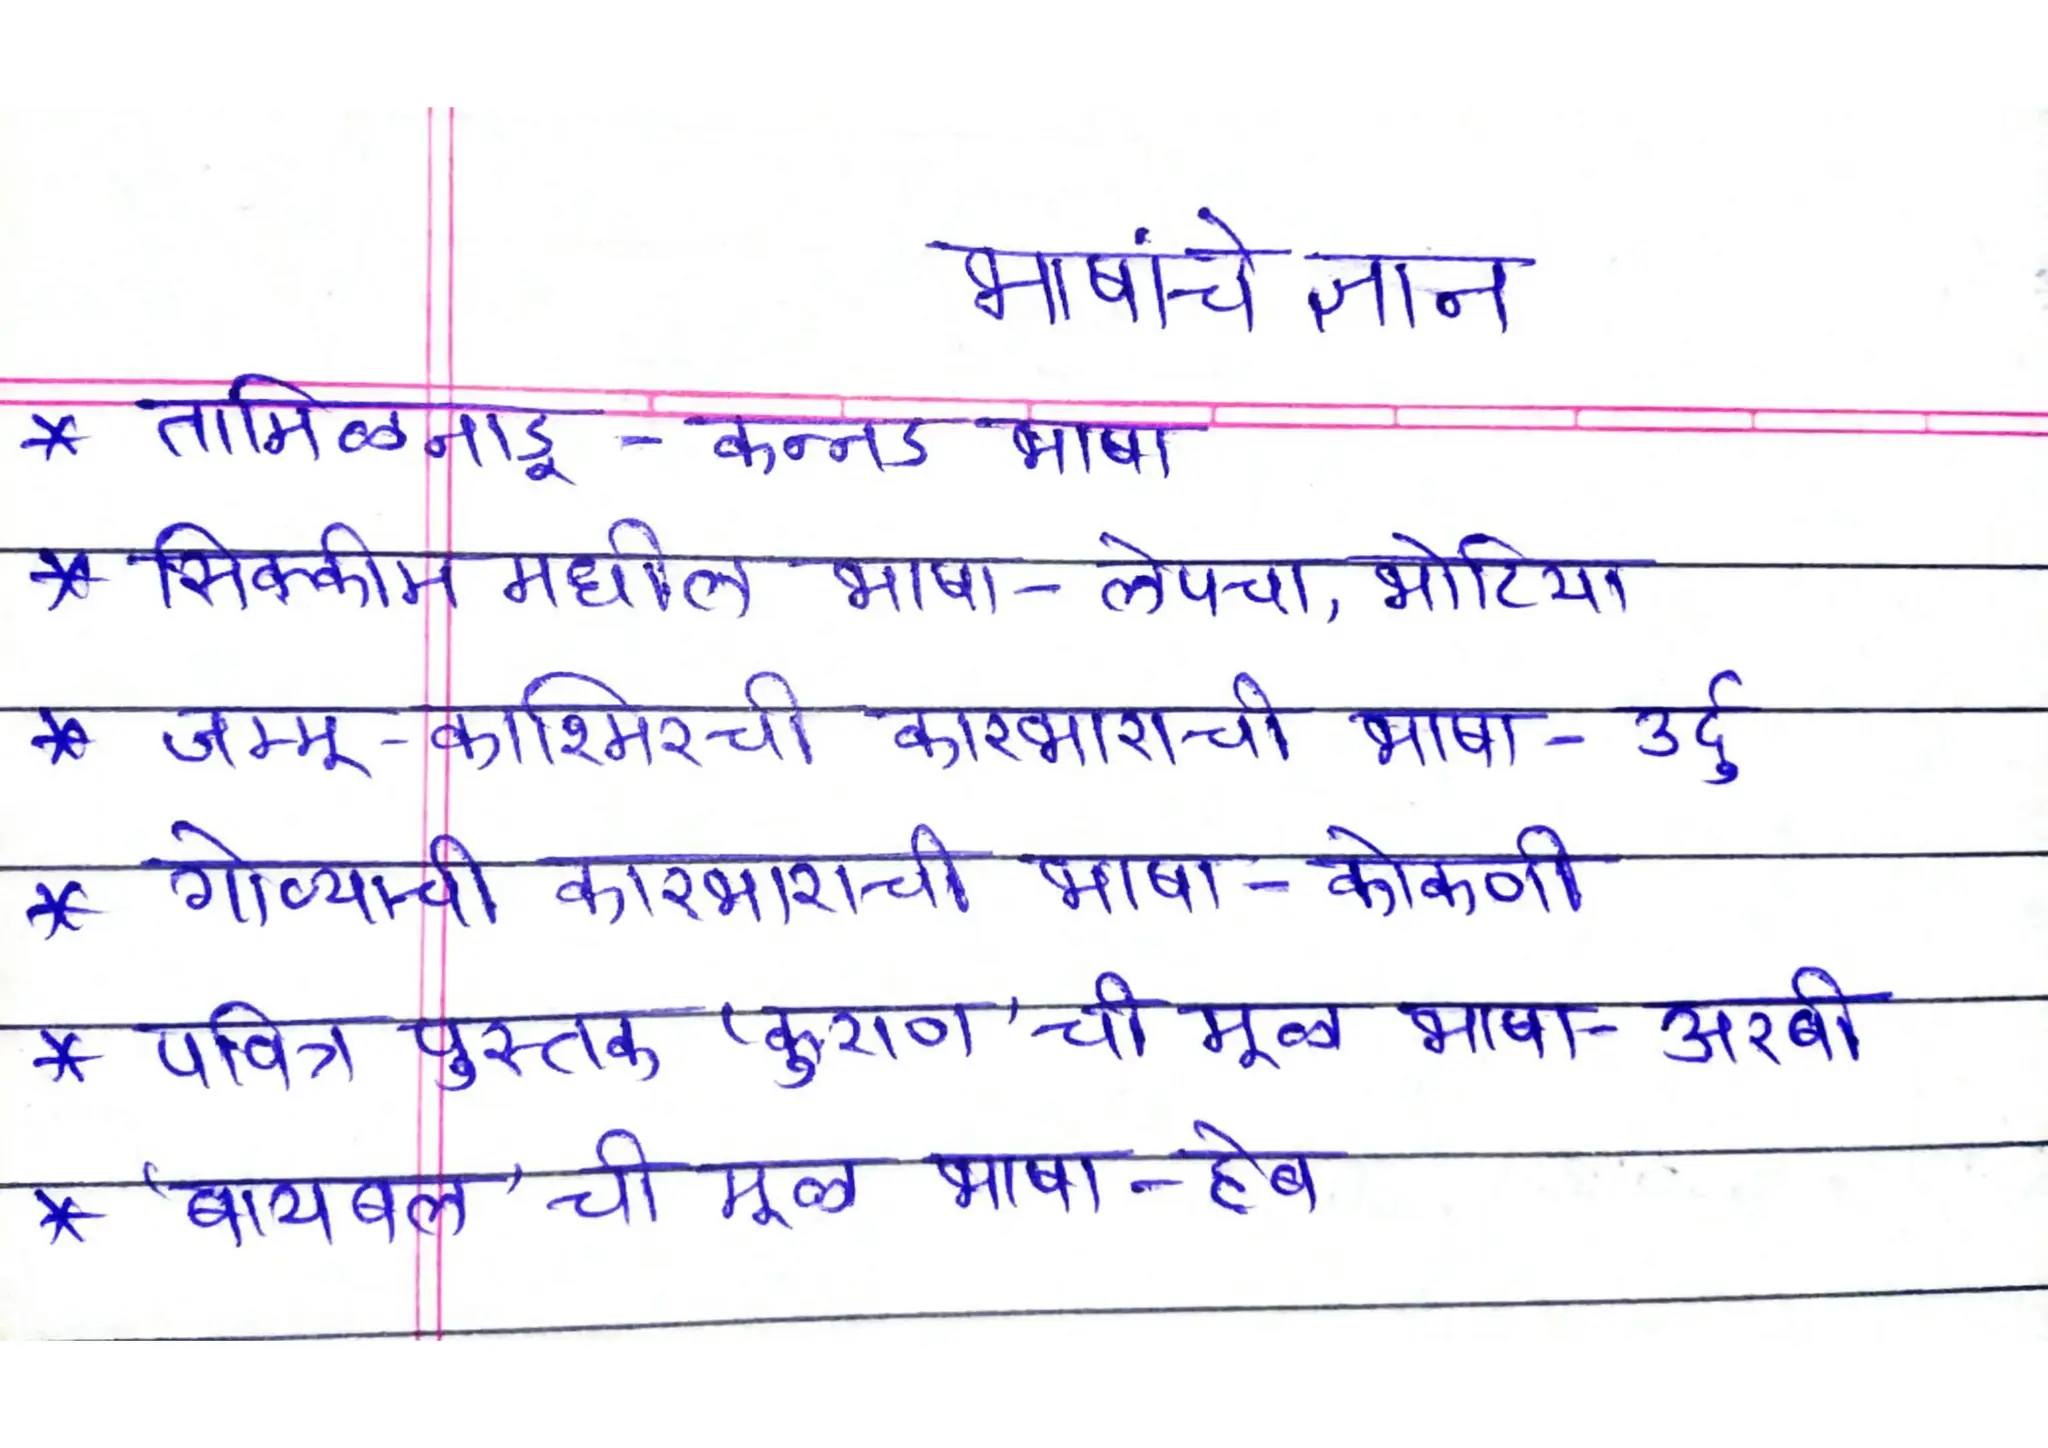 भाषांचे ज्ञान
* तामिळनाडू - कन्नड भाषा
* सिक्कीम मधील भाषा - लेपचा, भोटिया
* जम्मू - काश्मिरची कारभाराची भाषा - उर्दु
* गोव्याची कारभाराची भाषा - कोकणी
* पवित्र पुस्तक 'कुराण' ची मूळ भाषा - अरबी
* 'बायबल' ची मूळ भाषा - हेब